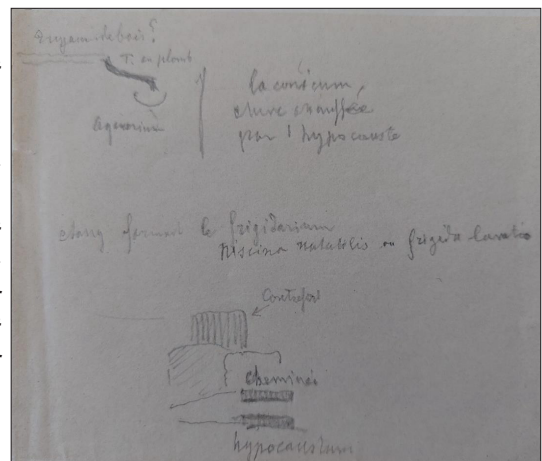 T. en plomb
laconicum,
étuve chauffée
par l'hypocauste
étang formant le frigidarium
piscina natabilis ou frigida lavatio
Contrefort
cheminée
hypocaustum